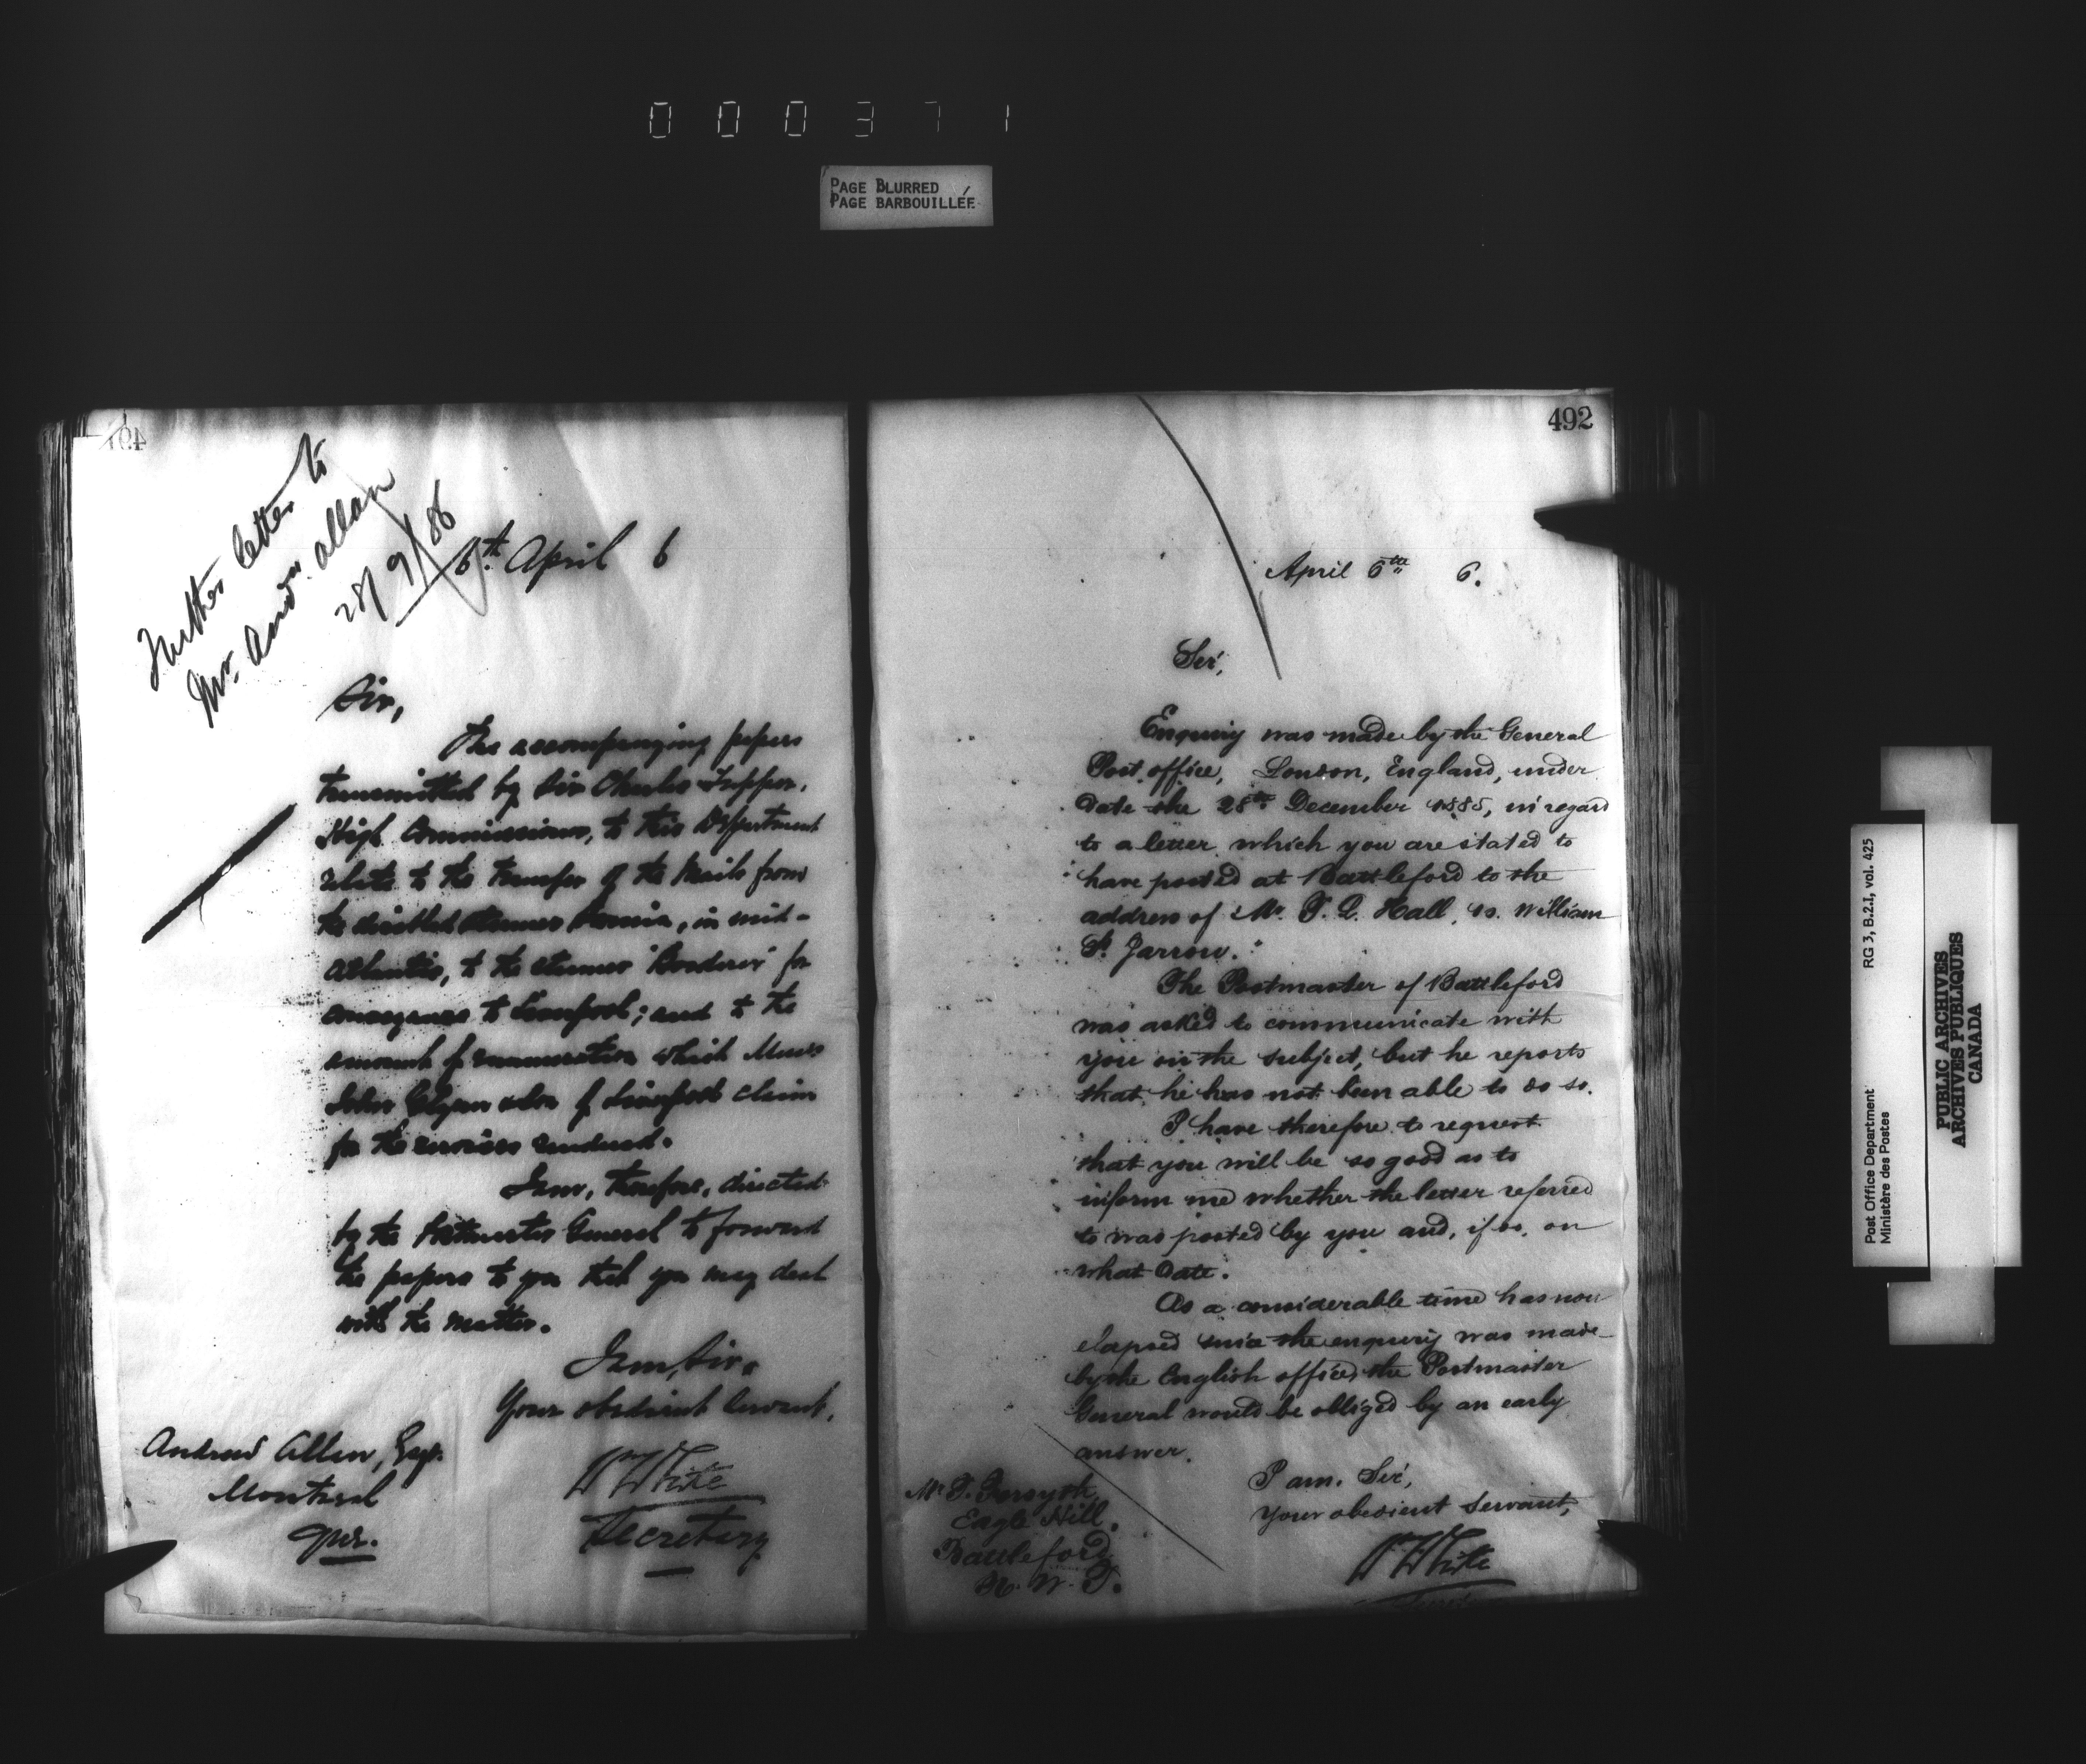 000371
PAGE BLURRED
PAGE BARBOUILLÉE
Further letter to
Mr. Andw. Allan
28/9/86
6th. April 6
Sir,
The accompanying papers
transmitted by Sir Charles Tupper,
High Commissioner, to this Department
relate to the transfer of the Mails from
the disabled steamer, in mid-
Atlantic, to the steamer for
conveyance to Liverpool; and to the
amount of remuneration which Messrs
John Glynn & Son of Liverpool claim
for the services rendered.
I am, therefore, directed
by the Postmaster General to forward
the papers to you that you may deal
with the matter.
I am, Sir,
Your obedient Servant,
Andrew Allan, Esqr.
Montreal
Que.
W White
Secretary
492
April 6th 6.
Sir,
Enquiry was made by the General
Post office, London, England, under
date the 28th December 1885, in regard
to a letter which you are stated to
have posted at Battleford to the
address of Mr. T. D. Hall, William
St. Jarrow.
The Postmaster of Battleford
was asked to communicate with
you on the subject, but he reports
that he has not been able to do so.
I have therefore to request
that you will be so good as to
inform me whether the letter referred
to was posted by you and, if so, on
what date.
As a considerable time has now
elapsed since the enquiry was made
by the English office, the Postmaster
General would be obliged by an early
answer.
I am, Sir,
Your obedient Servant,
W White
Mr T. Forsyth,
Eagle Hill,
Battleford,
N. W. T.
Post Office Department RG 3, B.2.I, vol. 425
Ministère des Postes
PUBLIC ARCHIVES
ARCHIVES PUBLIQUES
CANADA